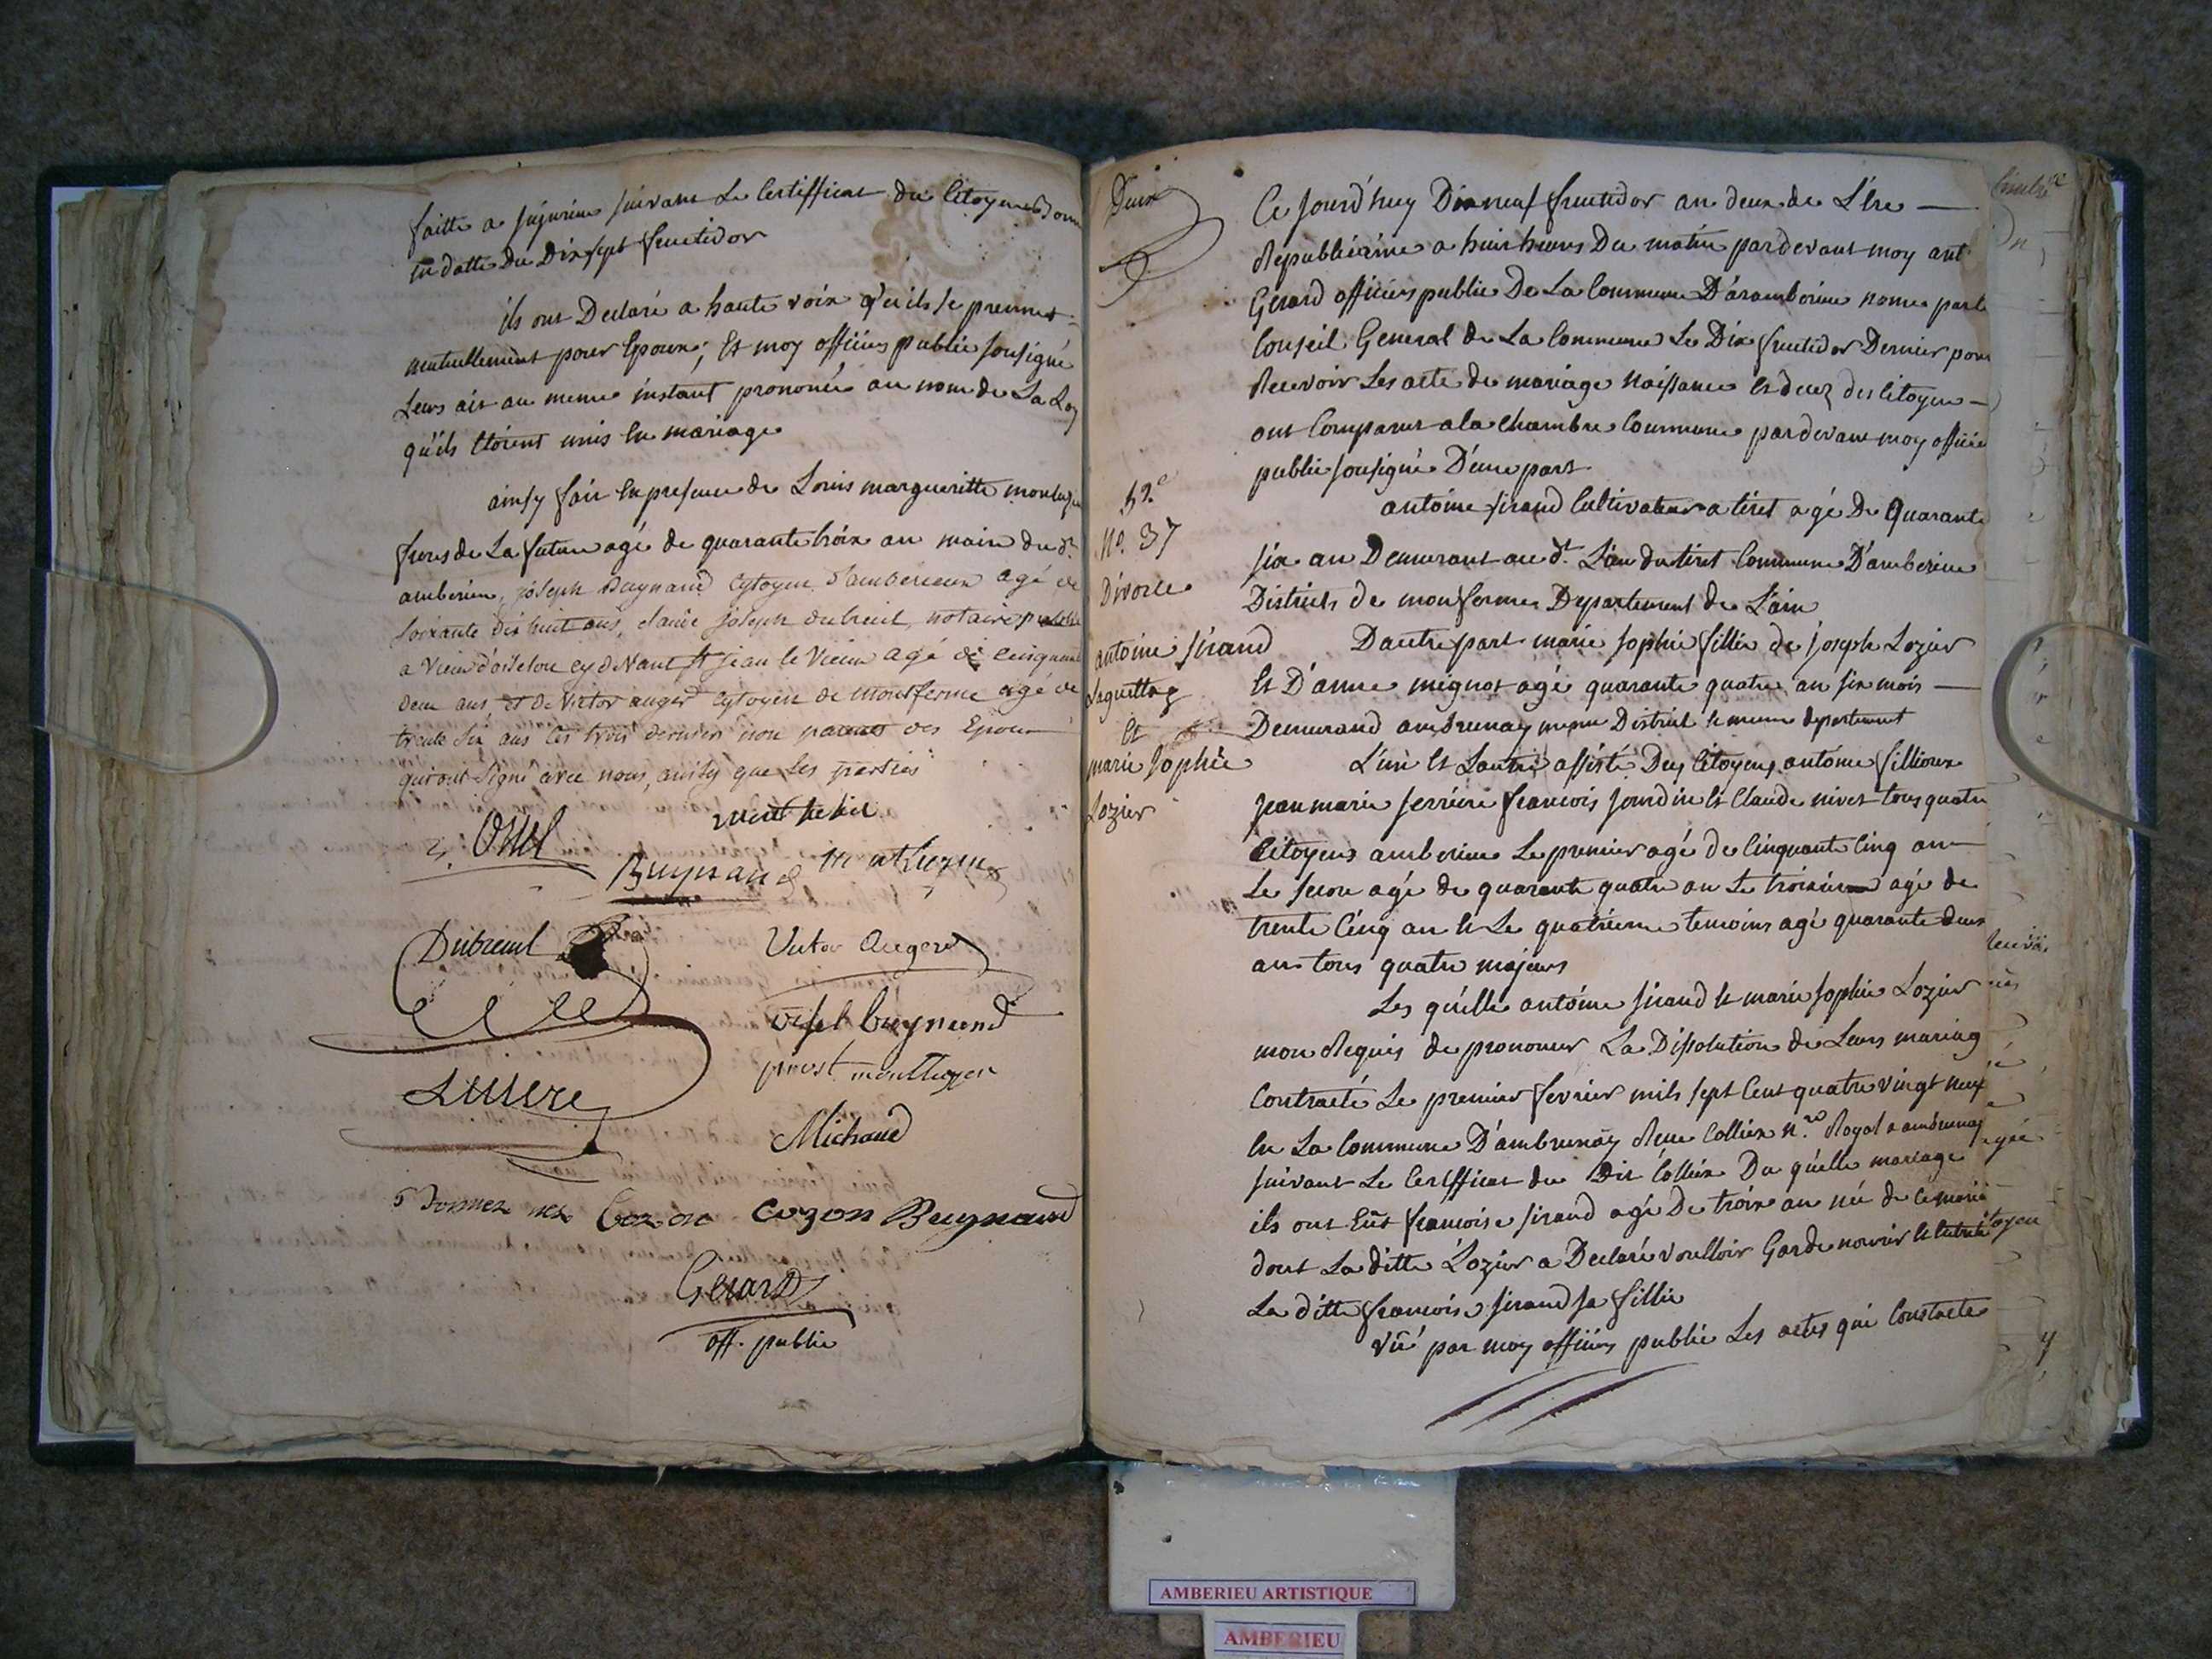 faitte a jujurieu suivant Le Certifficat du Citoyen
en datte du Dix sept fructidor
ils ont Declaré a haute voix qu'ils se prennent
mutuellement pour Epoux; Et moy officier public sousigné
Leurs ais au meme instant prononcé au nom de La Loy
qu'ils Etoient unis En mariage
ainsy fait En presence de Louis margueritte
freres de La future agé de quarante troix an maire du dt
amberieu, joseph Buynand Cytoyen d'amberieux agé de
soixante dix huit ans, claude joseph dubreuil, notaire public
a Vieux d'osselou cy devant St jean le Vieux agé de cinquante
deux ans et de Victor auger Cytoyen de montferme agé de
trente six ans les trois derniers non parents des Epoux
qui ont signé avec nous, ainsy que les parties
Orsel
Buynand montluzin
Dubreuil Victor Auger
orsel buynand
Michaud
Cozon Buynand
Gerard
off. public
Deux
Ce jourd'huy Dix neuf fructidor an deux de L'Ere
Republicaine a huit heures Du matin pardevant moy ant
Gerard officier public De La Commune D'aramberieu nomé par le
Conseil General de La Commune Le Dix fructidor Dernier pour
Recevoir Les acte de mariage Naissance Et decez des Citoyen
ont Comparut a la Chambre Commune pardevant moy officier
public sousigné D'une part
antoine sirand Cultivateur a tiret agé De Quarante
six an Demurant au dt Lieu du tiret Commune D'amberieu
District de monfermes Departement de L'ain
52e
No. 37
Divorce
antoine sirand
Laguettaz
Et
marie sophie
Lozier
D'autre part marie sophie fillie de joseph Lozier
Et D'anne mignot agé quarante quatre an six mois
Demurand ambrunay meme District le meme departement
L'un Et Lautre assisté Des Citoyens antoine fillioux
jean marie ferriere francois jourdin Et Claude nivet tous quatre
Citoyens amberieu Le premier agé de Cinquante Cinq an
Le second agé de quarante quatre an Le troixieme agé de
trente Cinq an Et Le quatrieme temoins agé quarante deux
an tous quatre majeurs
Les quelle antoine sirand Et marie sophie Lozier
mon Requis de prononcer La Dissolution de Leurs mariag
Contracté Le premier fevrier mils sept Cent quatre vingt neuf
En La Commune D'ambrunay Reçu Colliex nre Royal a ambrunay
suivant Le Certifficat du Dit Colliex Du quelle mariage
ils ont Eut francoise sirand agé De troix an né de Ce mariag
dont La ditte Lozier a Declaré voulloir Garde nourrir Et Entretenir
La ditte francoise sirand sa fillie
Vû par moy officier public Les actes qui Constacte